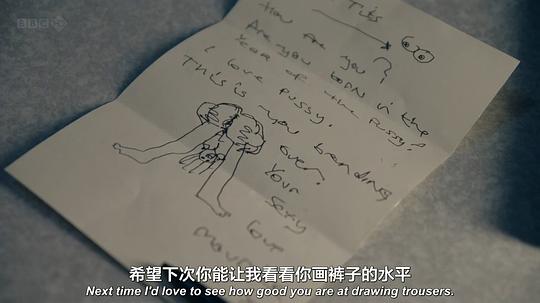 BBC
Tits
How are you?
Are you born in the
Year of the pussy?
I love pussy.
This is you bending
over.
Your
Sexy
希望下次你能让我看看你画裤子的水平
Next time I'd love to see how good you are at drawing trousers.